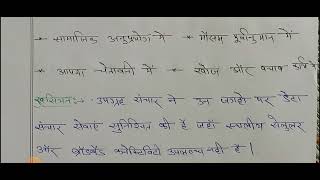 → सामाजिक अनुप्रयोग में → मौसम पूर्वानुमान में
→ आपदा चेतावनी में → खोज और बचाव कार्य में
उपग्रह संचार ने उन जगहों पर डेटा
संचार सेवाएं सुनिश्चित की हैं जहाँ स्थलीय सेलुलर
और ब्रॉडबैंड कनेक्टिविटी उपलब्ध नहीं है।